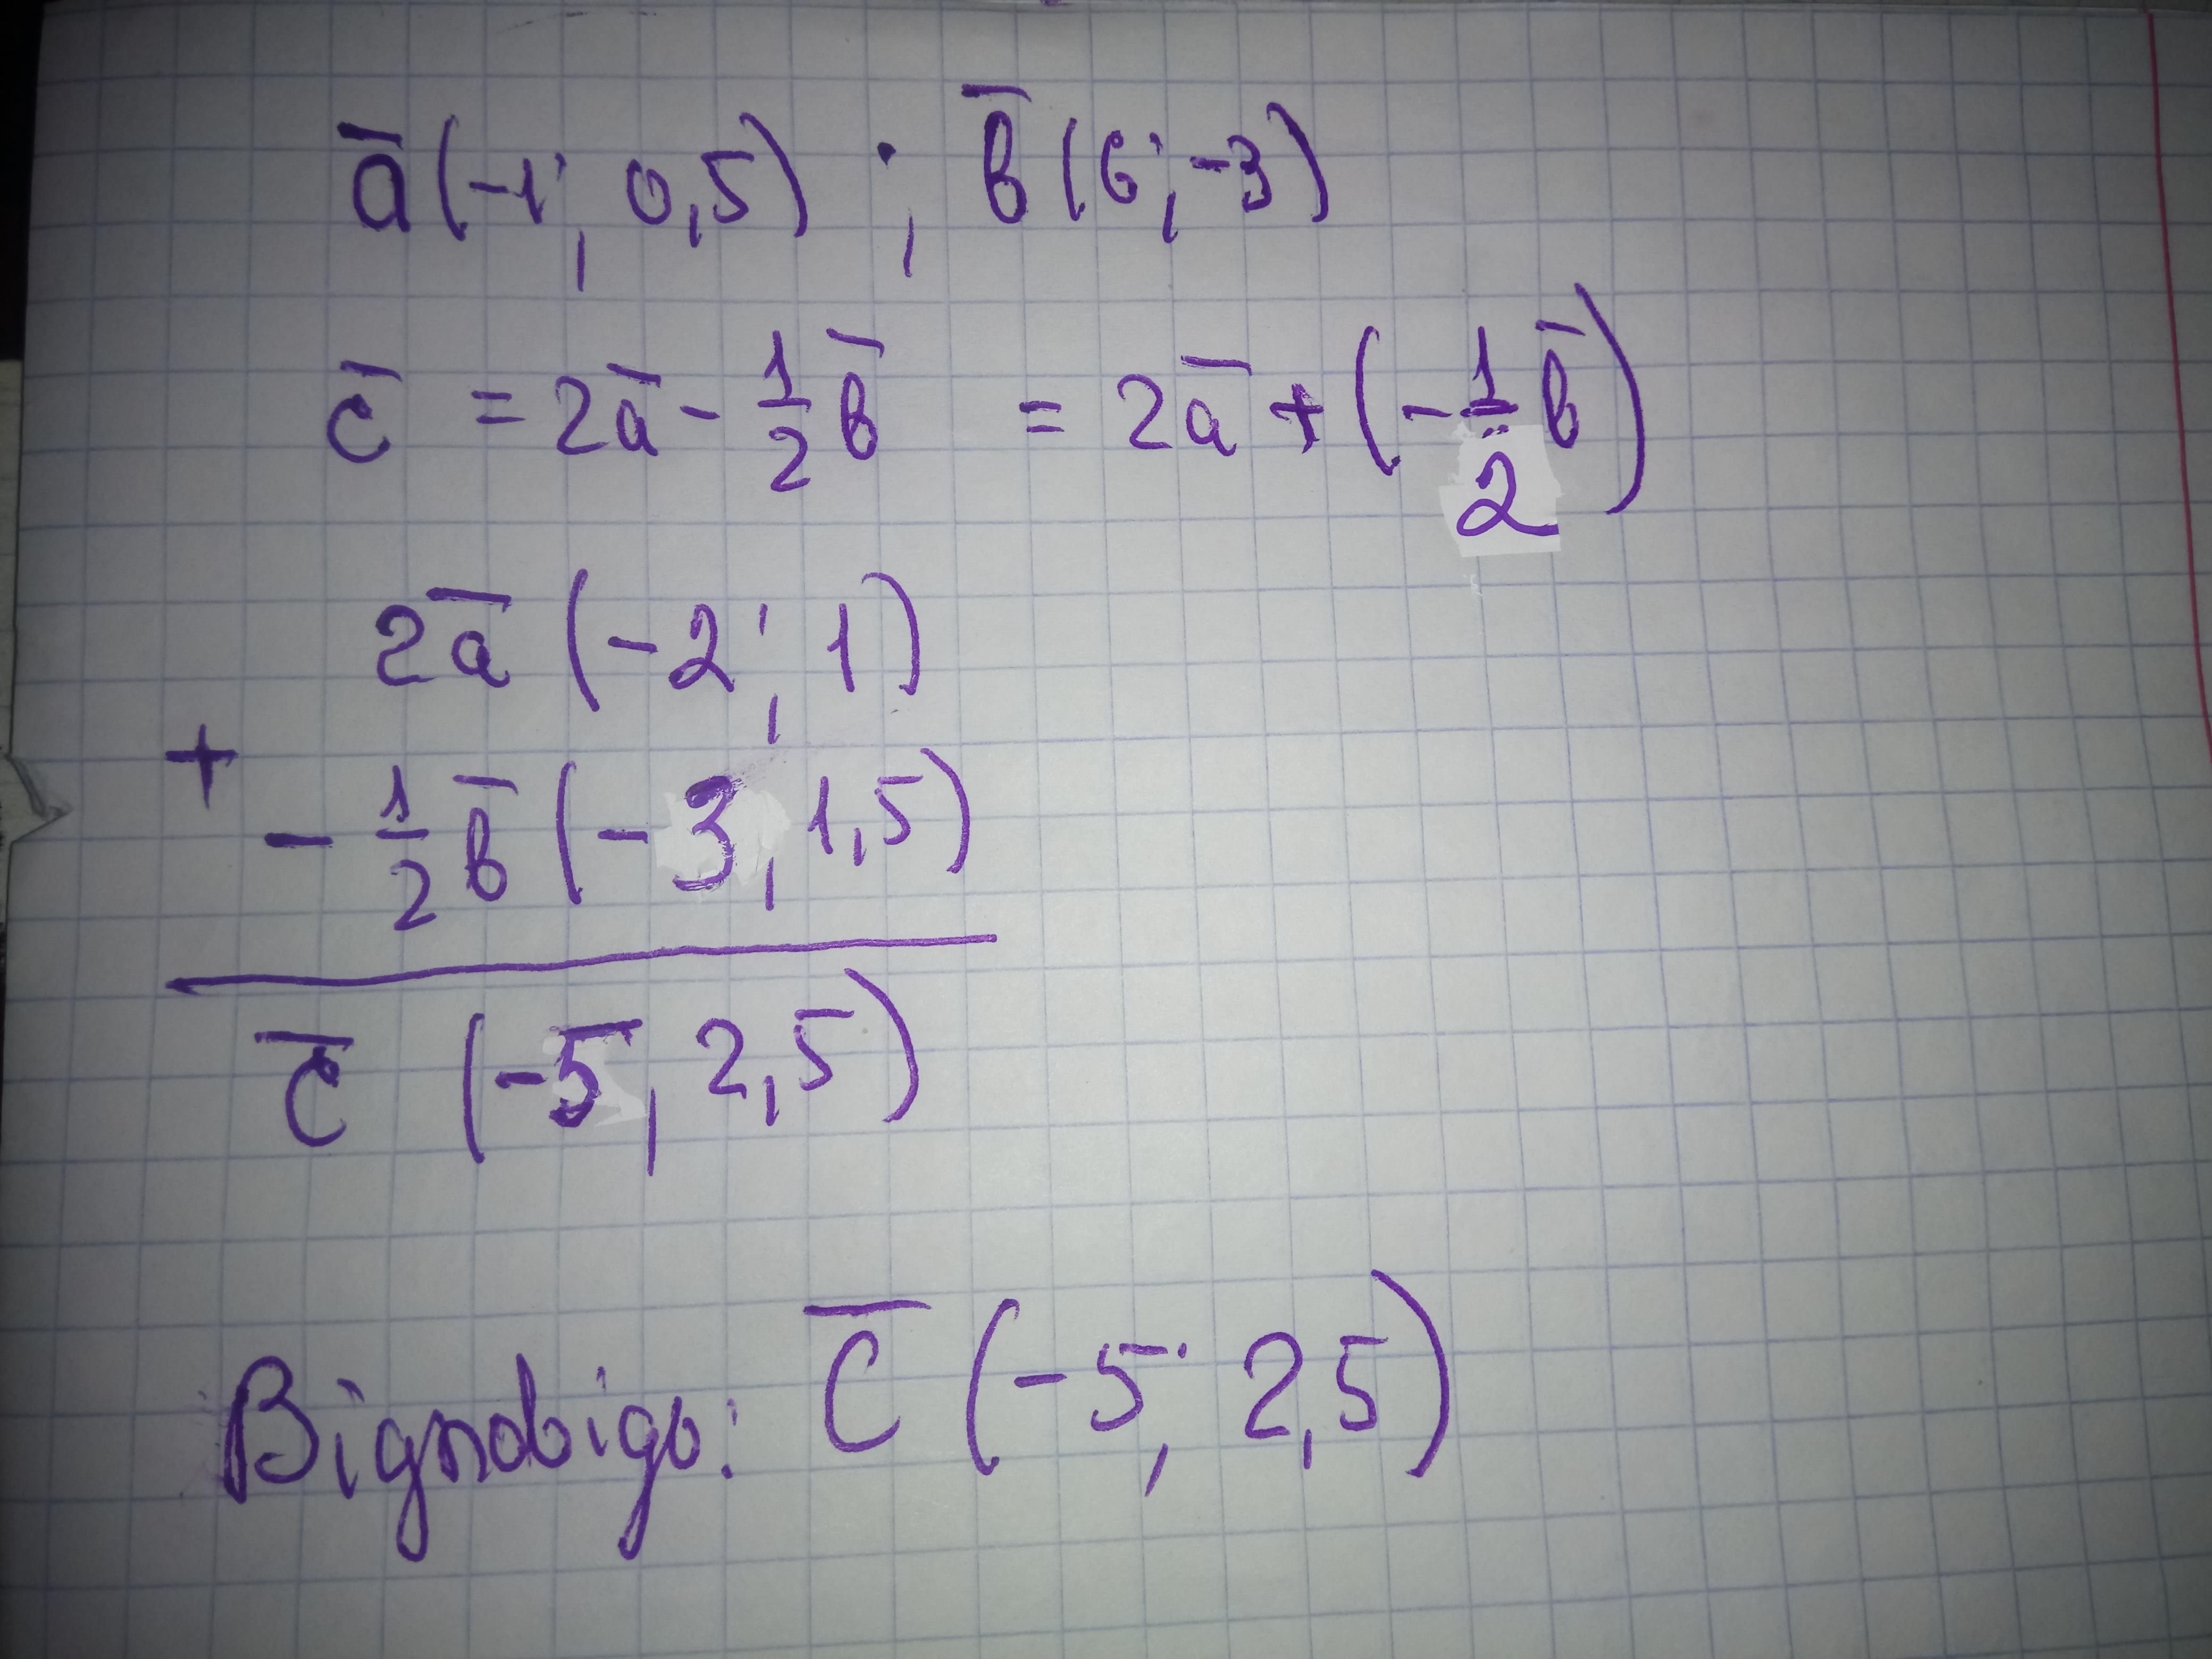 a̅ (-1; 0,5) ; b̅ (6; -3)
c̅ = 2a̅ - 1/2 b̅ = 2a̅ + (-1/2 b̅)
2a̅ (-2; 1)
+
- 1/2 b̅ (-3; 1,5)
c̅ (-5; 2,5)
Відповідь: c̅ (-5; 2,5)